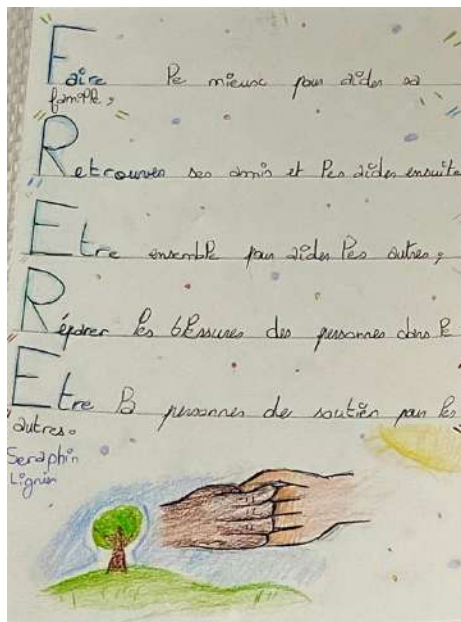 Faire le mieux pour aider sa
famille,
Retrouver ses amis et les aider ensuite
Etre ensemble pour aider les autres,
Réparer les blessures des personnes dans le
Etre la personnes de soutien pour les
autres.
Seraphin
Lignin